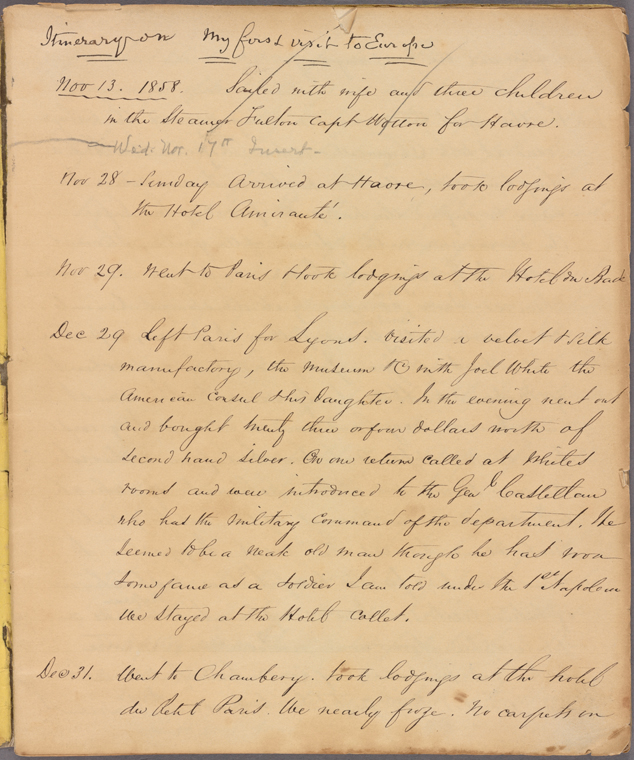 Itinerary on My first visit to Europe
Nov 13. 1858. Sailed with wife and three children
in the Steamer Fulton Capt Wotton for Havre.
Wed. Nov. 17th Insert-
Nov 28 - Sunday Arrived at Havre, took lodgings at
the Hotel Amiranté.
Nov 29. Went to Paris & took lodgings at the Hotel du Bade
Dec 29 Left Paris for Lyons. Visited a velvet & silk
manufactory, the museum &c with Joel White the
American Consul & his Daughter. In the evening went out
and bought twenty three or four dollars worth of
second hand silver. On our return called at Whites
rooms and were introduced to the Genl Castellan
who has the military command of the department. He
seemed to be a weak old man though he has won
some fame as a soldier I am told under the 1st Napoleon
We stayed at the Hotel Collet.
Dec 31. Went to Chambery. took lodgings at the hotel
du Petit Paris. We nearly froze. No carpets on